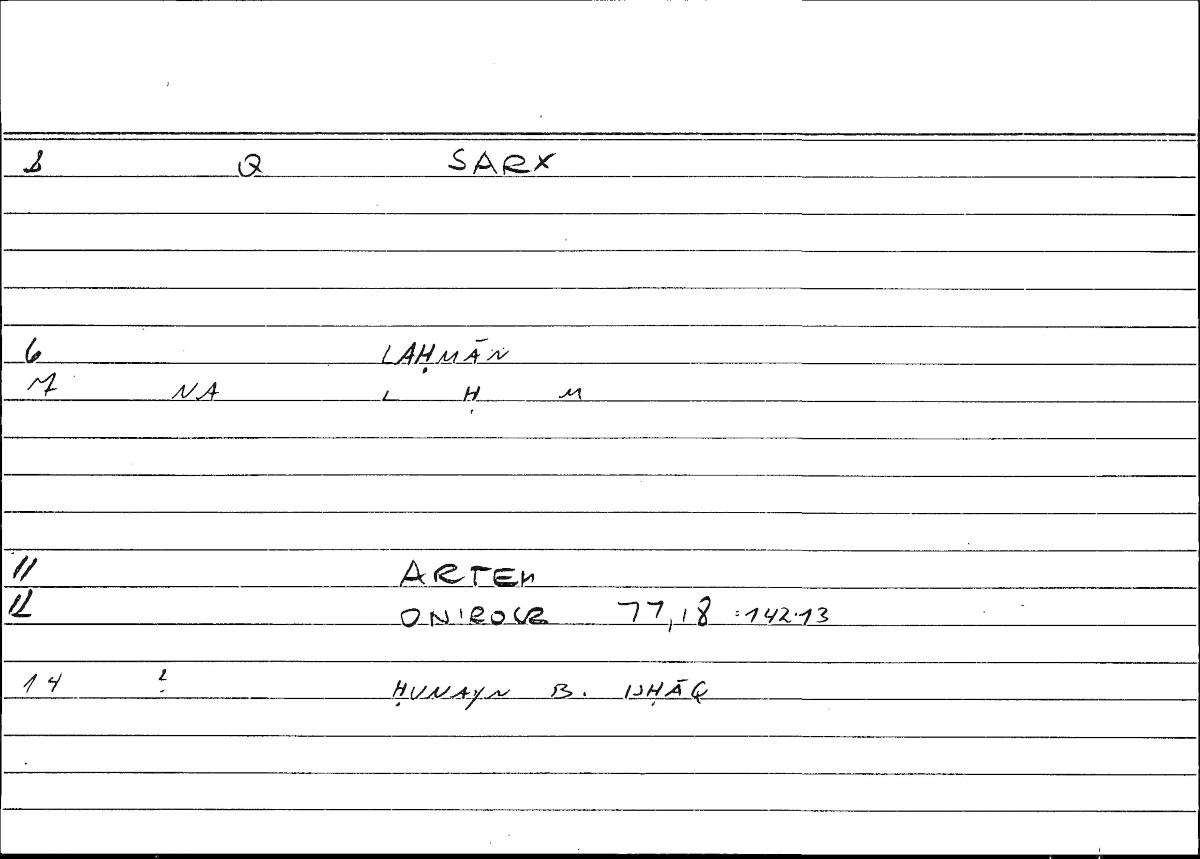 1 Q SARX
6 LAḤMĀN
7 NA L Ḥ M
11 ARTEM
12 ONIROCR 77,18 :142.13
14 ḤUNAYN B. ISḤĀQ